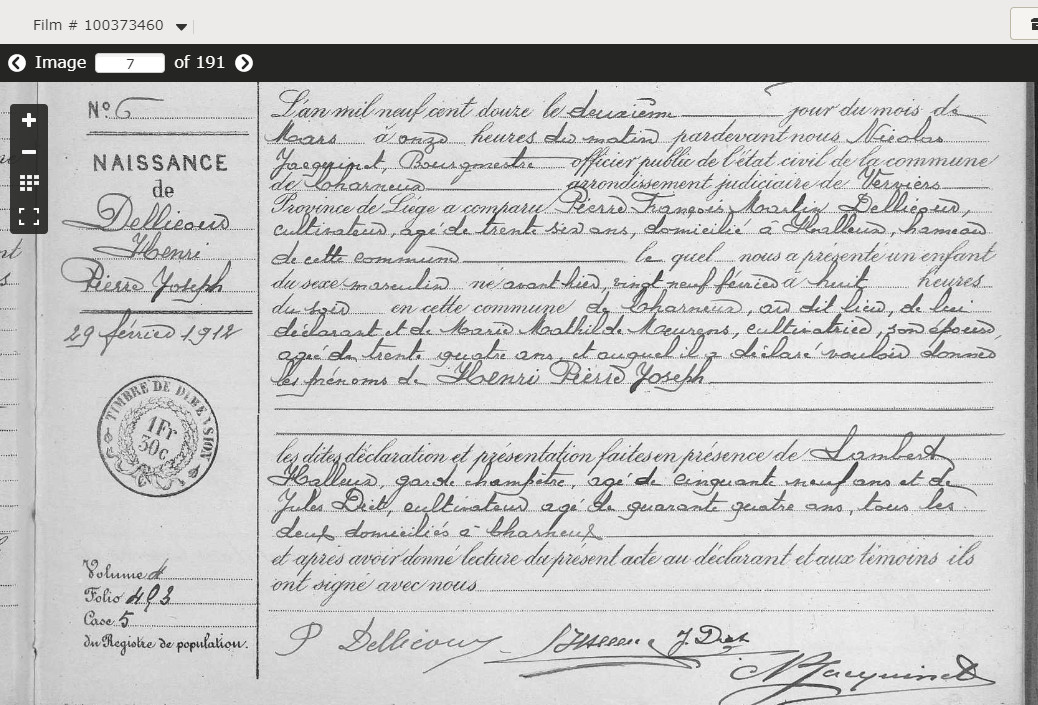 Film # 100373460
Image 7 of 191
N° 6
NAISSANCE
de
Dellicour
Henri
Pierre Joseph
29 février 1912
TIMBRE DE DIMENSION
1Fr
30c
Volume 4
Folio 493
Case 5
du Registre de population.
L'an mil neuf cent douze le deuxième jour du mois de
Mars à onze heures du matin pardevant nous Nicolas
Jacquinet, Bourgmestre officier public de l'état civil de la commune
de Charneux arrondissement judiciaire de Verviers
Province de Liége a comparu Pierre François Martin Dellicour,
cultivateur, agé de trente six ans, domicilié à Halleux, hameau
de cette commune le quel nous a présenté un enfant
du sexe masculin né avant hier, vingt neuf février à huit heures
du soir en cette commune de Charneux, au dit lieu, de lui
déclarant et de Marie Mathilde Meurens, cultivatrice, son épouse,
agée de trente quatre ans, et auquel il a déclaré vouloir donner
les prénoms de Henri Pierre Joseph
les dites déclaration et présentation faites en présence de Lambert
Halleux, garde champêtre, agé de cinquante neuf ans et de
Jules Diet, cultivateur agé de quarante quatre ans, tous les
deux domiciliés à Charneux
et après avoir donné lecture du présent acte au déclarant et aux témoins ils
ont signé avec nous
P Dellicour J. Diet
N Jacquinet